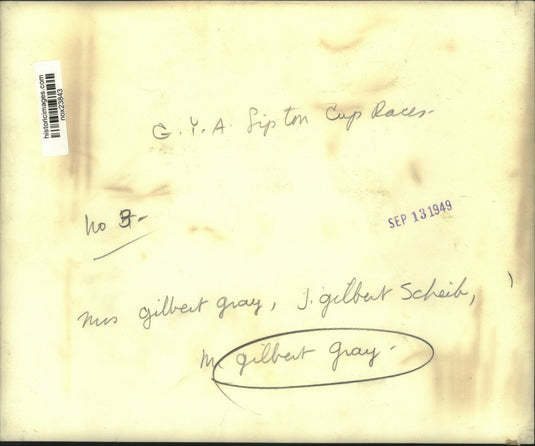 historicimages.com
nox23843
G.Y.A. Lipton Cup Races-
No 3-
SEP 13 1949
Mrs gilbert gray, J. gilbert Scheib,
M gilbert gray-